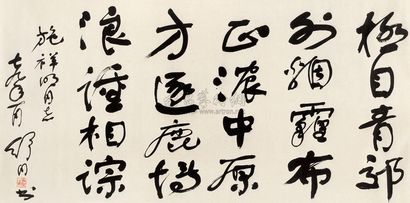 极目青郊
外烟霾布
正浓中原
方逐鹿博
浪踵相踪
施祥明同志
舒同书